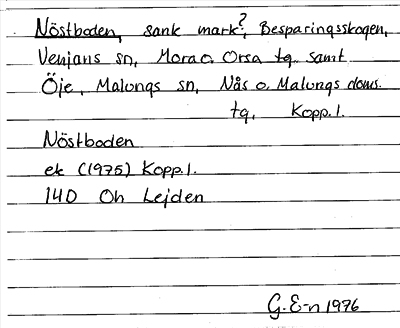 Nöstboden, sank mark?, Besparingsskogen,
Venjans sn, Mora o. Orsa tg samt
Öje, Malungs sn, Nås o. Malungs doms.
tg, Kopp. l.
Nöstboden
ek (1975) Kopp. l.
14D Oh Lejden
G. E-n 1976